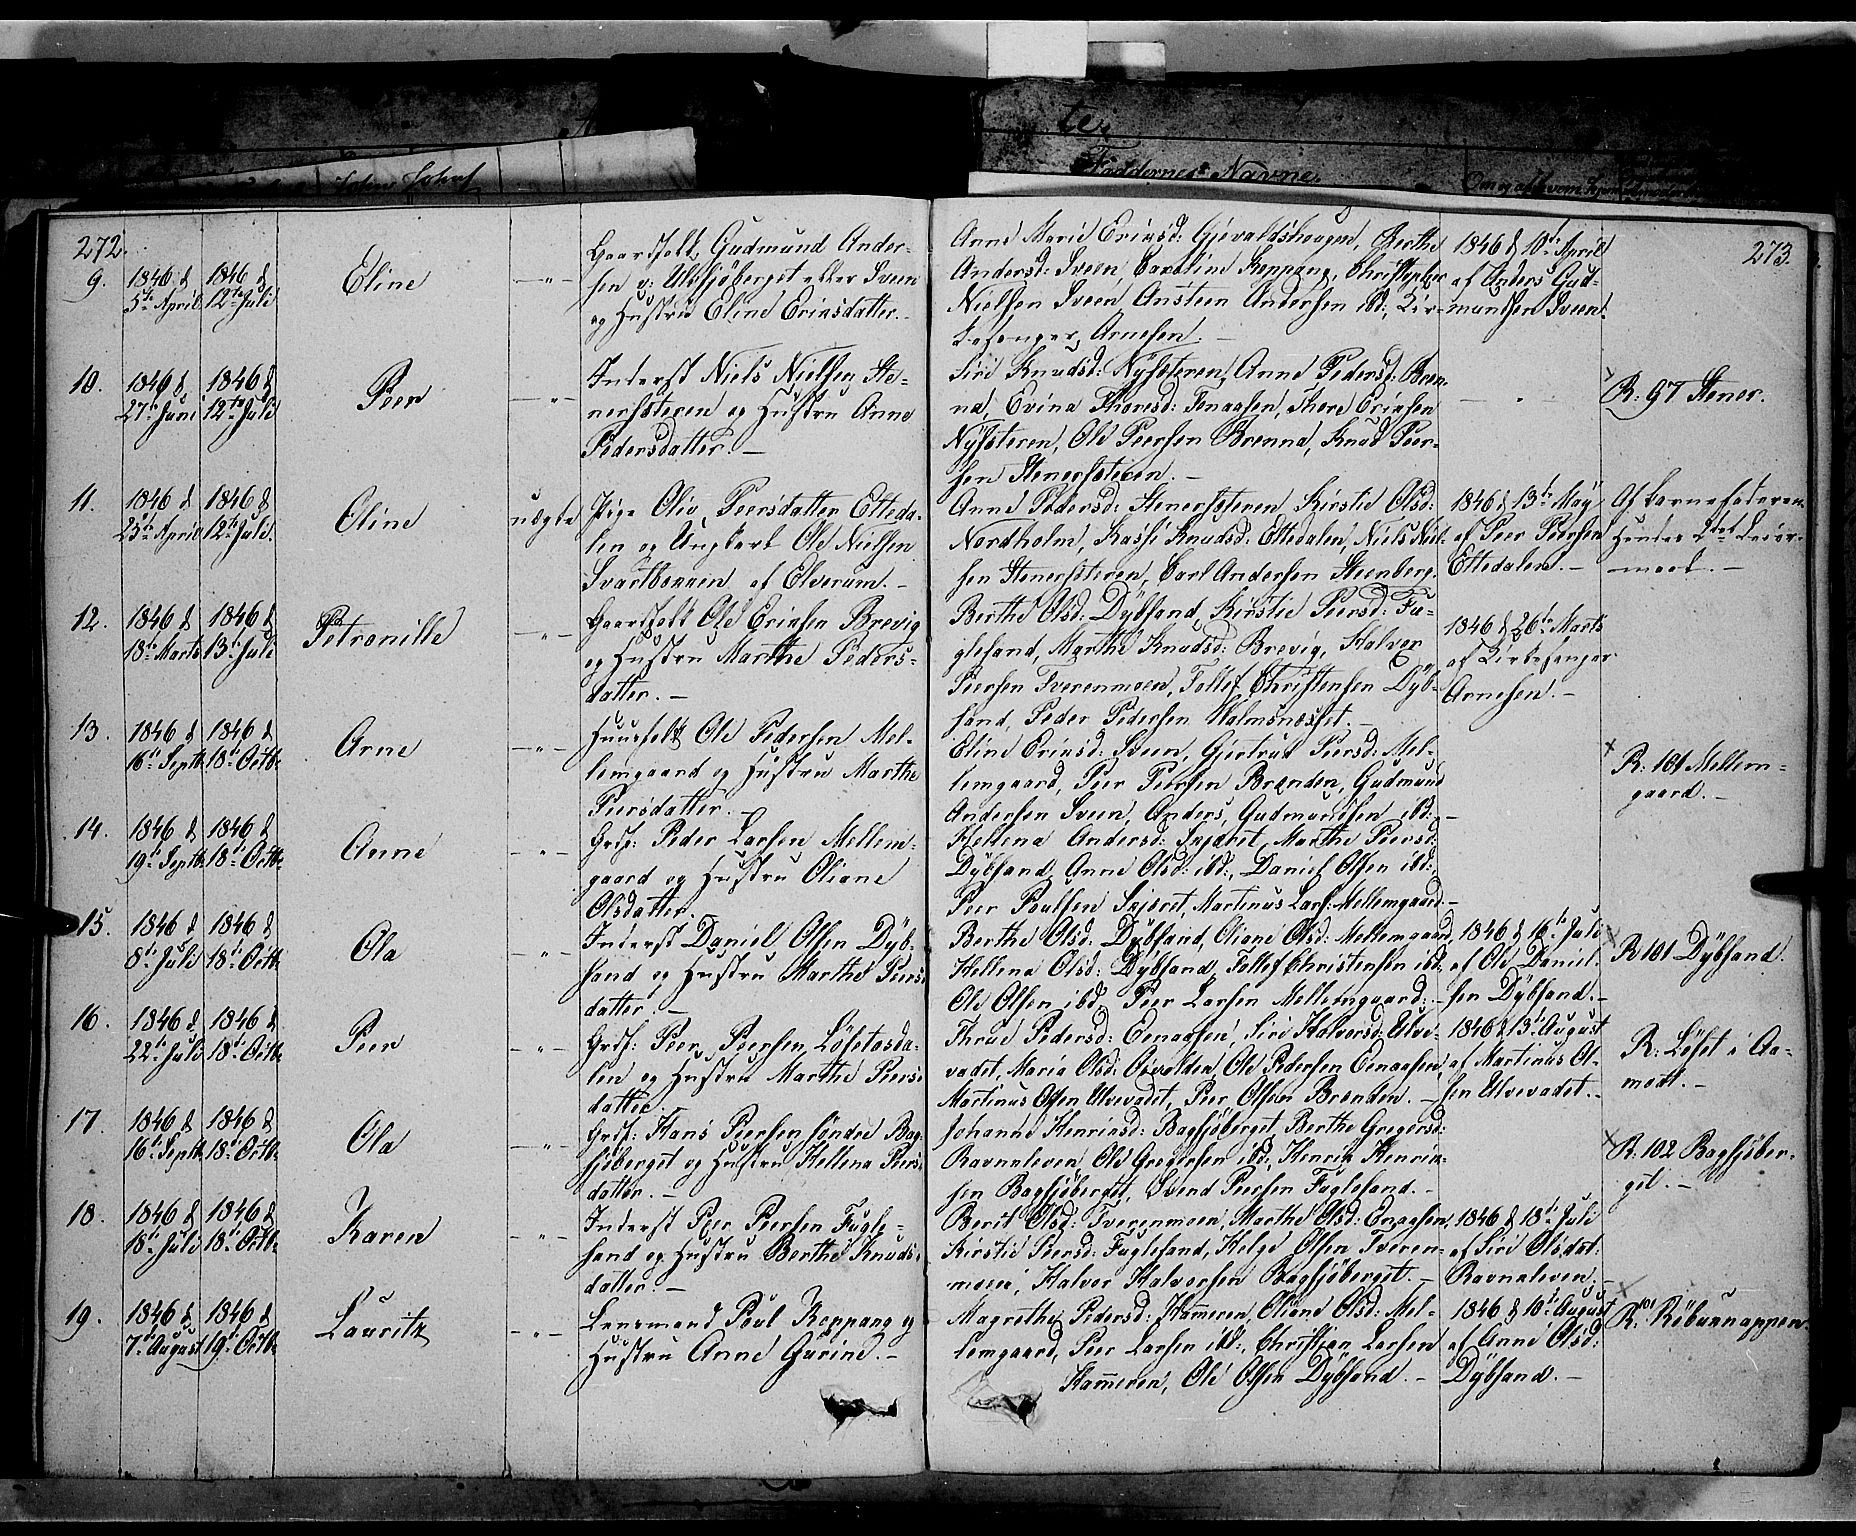 te,
Faddernes Navne
272.
273.
9.
1846 d
5te April
1846 d
12te Juli
Eline
— " —
Huusfolk Gudmund Ander-
sen v: Ulvsjöberget eller Sveen
og Hustru Eline Eriksdatter.
Anne Marie Eriksd: Gjevaldshougen, Berthe
Andersd: Sveen, Caroline Koppang, Christopher
Nielsen Sveen, Ansteen Andersen ibd:, Kir-
kesanger Arnesen. —
1846 d 10de April
af Anders Gud-
mundsen Sveen.
10.
1846 d
27de Juni
1846 d
12te Juli
Peer
— " —
Inderst Niels Nielsen Ste-
nersæteren og Hustru Anne
Pedersdatter. —
Siri Knudsd: Nysæteren, Anne Pedersd: Bren-
na, Evina Thoresd: Fonaasen, Thore Eriksen
Nysæteren, Ole Peersen Brenna, Knud Peer-
sen Stenersæteren. —
— " —
R: 97 Stener.
11.
1846 d
25de April
1846 d
12te Juli.
Eline
uægte
Pige Oliv Peersdatter Etteda-
len og Ungkarl Ole Nielsen
Svartbonnen af Elverum. —
Anne Pedersd: Stenersæteren, Kirstie Olsd:
Nordholm, Kasse Knudsd: Ettedalen, Niels Niel-
sen Stenersæteren, Carl Andersen Steenberg.
1846 d 13de May
af Peer Peersen
Ettedalen. —
Af Barnefaderen
Hendes 2det Leier-
maal. —
12.
1846 d
18de Marts
1846 d
13de Juli
Petronille
— " —
Huusfolk Ole Eriksen Brevig
og Hustru Marthe Peders-
datter. —
Berthe Olsd: Dybsand, Kirstie Peersd: Fu-
glesand, Marthe Knudsd: Brevig, Halvor
Peersen Tverenmoen, Tollef Christensen Dyb-
sand, Peder Pedersen Malmsnæsset. —
1846 d 26de Marts
af Kirkesanger
Arnesen. —
13.
1846 d
16de Septb.
1846 d
18de Octb.
Arne
— " —
Huusfolk Ole Pedersen Mel-
lemgaard og Hustru Marthe
Peersdatter. —
Eline Eriksd: Sveen, Gjertrud Peersd: Mel-
lemgaard, Peer Peersen Brænden, Gudmund
Andersen Sveen, Anders Gudmundsen ibd: —
R: 101 Mellem-
gaard. —
14.
1846 d
19de Septb.
1846 d
18de Octb.
Anne
— " —
Grdf: Peder Larsen Mellem-
gaard og Hustru Oliane
Olsdatter.
Hellena Andersd: Skjæret, Marthe Peersd:
Dybsand, Anne Olsd: ibd:, Daniel Olsen ibd:,
Peer Poulsen Skjæret, Martinus Lars: Mellemgaard. —
15.
1846 d
8de Juli
1846 d
18de Octb.
Ola
— " —
Inderst Daniel Olsen Dyb-
sand og Hustru Marthe Peers-
datter. —
Berthe Olsd: Dybsand, Oliane Olsd: Mellemgaard,
Hellena Olsd: Dybsand, Tollef Christensen ibd:
Ole Olsen ibd:, Peer Larsen Mellemgaard: —
1846 d 16de Juli
af Ole Daniel-
sen Dybsand. —
R 101 Dybsand.
16.
1846 d
22de Juli
1846 d
18de Octb.
Peer
— " —
Grdf: Peer Peersen Löfetosda-
len og Hustru Marthe Peers-
datter.
Thrue Pedersd: Evnaasen, Siri Halvorsd: Ulve-
vadet, Maria Olsd: Osvolden, Ole Pedersen Evnaasen,
Martinus Olsen Ulvevadet, Peer Olsen Brenden. —
1846 d 13de August
af Martinus Ol-
sen Ulvevadet. —
R: Löset i Aa-
modt. —
17.
1846 d
16de Septb.
1846 d
18de Octb.
Ola
— " —
Grdf: Hans Peersen söndre Bag-
sjöberget og Hustru Hellena Peers-
datter. —
Johanne Henriksd: Bagsjöberget, Berthe Gregersd:
Ravnaleven, Ole Gregersen ibd:, Henrik Henrik-
sen Bagsjöberget, Svend Peersen Fuglesand. —
R: 102 Bagsjöber-
get. —
18.
1846 d
18de Juli
1846 d
18de Octb.
Karen
— " —
Inderst Peer Peersen Fugle-
sand og Hustru Berthe Knuds-
datter. —
Berit Olsd: Tverenmoen, Marthe Olsd: Evnaasen,
Kirstie Peersd: Fuglesand, Helge Olsen Tveren-
moen, Halvor Halvorsen Bagsjöberget. —
1846 d 18de Juli
af Siri Olsdat:
Ravnaleven. —
19.
1846 d
7de August
1846 d
19de Octb.
Lauritz
— " —
Lensmand Poul Koppang og
Hustru Anne Gurine. —
Magrethe Pedersd: Hammeren, Oliane Olsd: Mel-
lemgaard, Peer Larsen ibd:, Christian Larsen
Hammeren, Ole Olsen Dybsand. —
1846 d 10de August
af Anne Olsd:
Dybsand. —
R: 101 Röbunnappen.